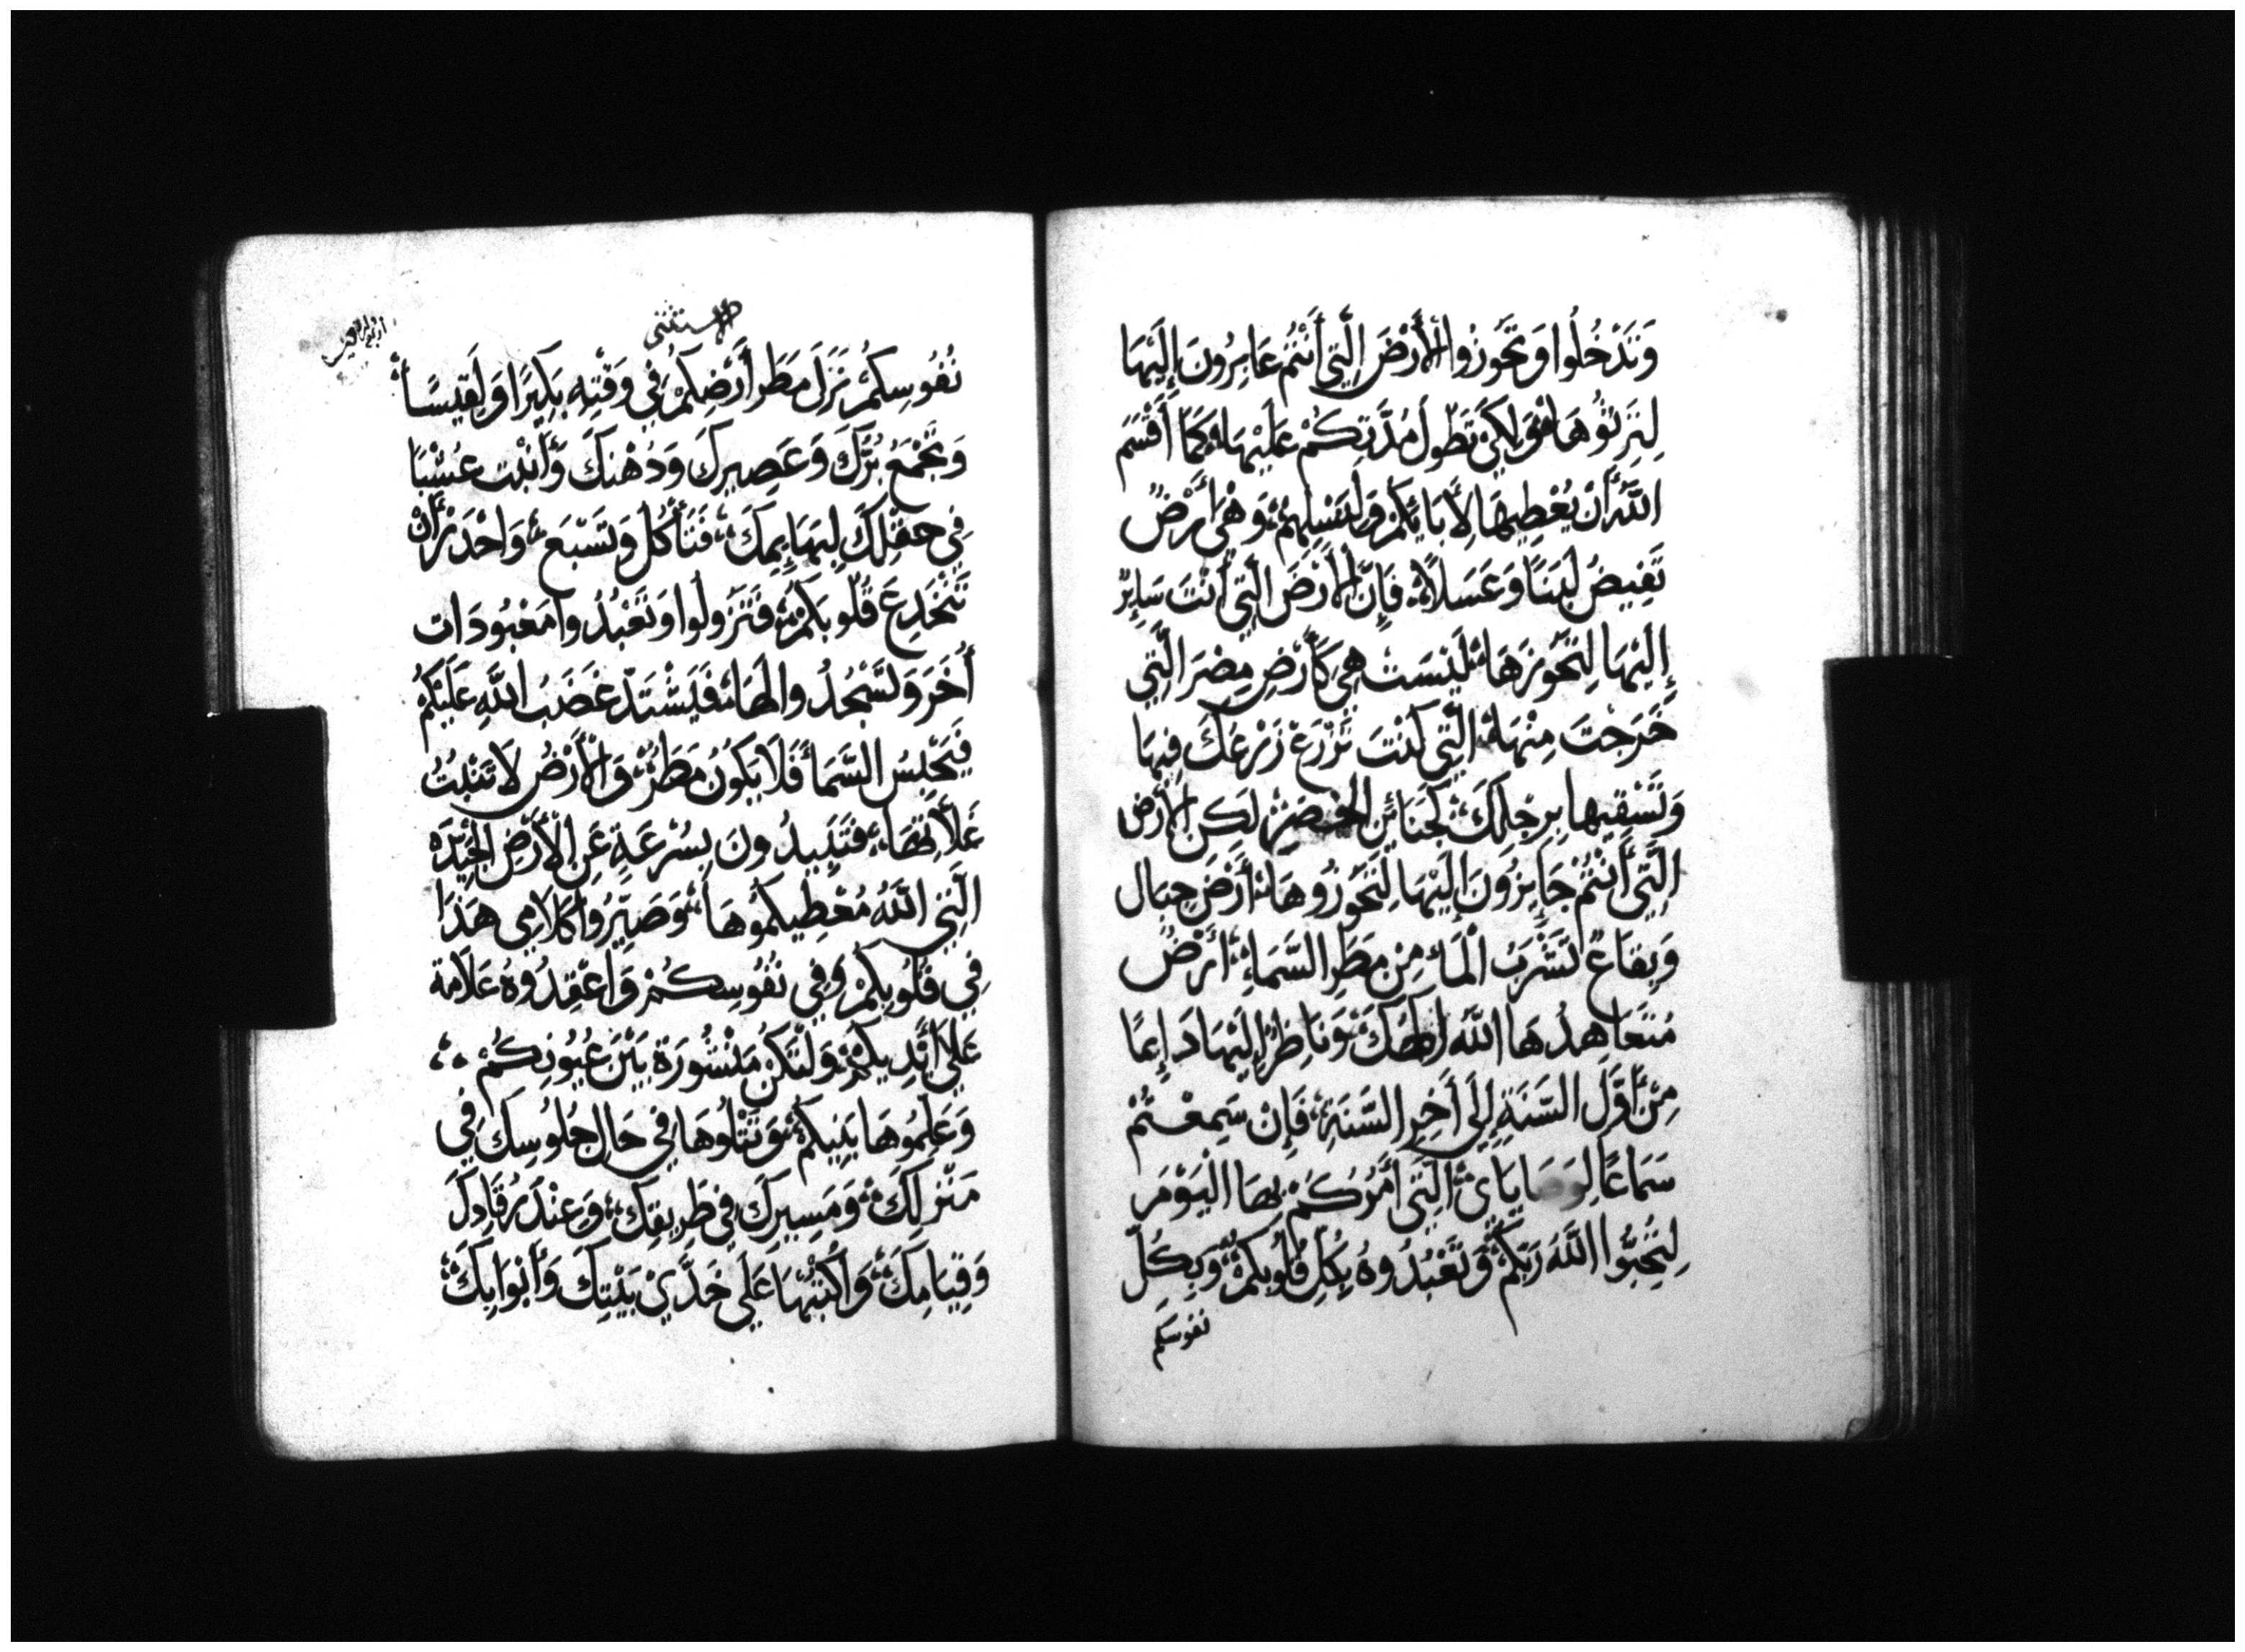 وَتَدْخُلُوا وَتَحُوزُوا الْأَرْضَ الَّتِي أَنْتُمْ عَابِرُونَ إِلَيْهَا
لِتَرِثُوهَا وَلِكَيْ تَطُولَ مُدَّتِكُمْ عَلَيْهَا كَمَا أَقْسَمَ
اللَّهُ أَنْ يُعْطِيهَا لِأَبَائِكُمْ وَلِنَسْلِهِمْ وَهْيَ أَرْضٌ
تَفِيضُ لَبَنًا وَعَسَلًا فَإِنَّ الْأَرْضَ الَّتِي أَنْتَ سَايِرٌ
إِلَيْهَا لِتَحُوزَهَا لَيْسَتْ هِيَ كَأَرْضِ مِصْرَ الَّتِي
خَرَجْتَ مِنْهَا الَّتِي كُنْتَ تَزْرَعْ زَرْعَكَ فِيهَا
وَتَسْقِيهَا بِرِجْلِكَ كَجَنَائِنِ الخضر لَكِنِ الْأَرْضِ
الَّتِي أَنْتُمْ جَايِزُونَ إِلَيْهَا لِتَحُوزُوهَا أَرْضَ جِبَال
وَبِقَاعٌ تَشْرَبُ الْمَاءَ مِنْ مَطَرِ السَّمَاءِ أَرْضٌ
مُتَعَاهِدُهَا اللَّهُ إِلَهَكَ وَنَاظِرٌ إِلَيْهَا دَايِمًا
مِنْ أَوَّلِ السَّنَةِ إِلَى أَخِرِ السَّنَةِ فَإِنْ سَمِعْتُمْ
سَمَاعًا لِوَصَايَايَ الَّتِي أَمَرْتُكُمْ بِهَا الْيَوْمَ
لِتُحِبُّوا اللَّهَ رَبَّكُمْ وَتَعْبُدُوهُ بِكُلِّ قُلُوبِكُمْ وَبِكُلِّ
نفوسكم
الاستثنى
نُفُوسِكُمْ نَزَلَ مَطَر أَرْضِكُمْ فِي وَقْتِهِ بَكِيرًا وَلَقِيسًا
وَتَجْمَعُ بُرَّكَ وَعَصِيرِكَ وَدُهْنِكَ وَأَنْبِت عُشْبًا
فِي حَقْلِكَ لِبَهَايِمِكَ فَتَأْكُل وَتَشْبَع وَاحْذَرْ أَنْ
تَنْخَدِعَ قُلُوبَكُمْ فَتَزُولُوا وَتَعْبُدُوا مَعْبُودَات
أُخَرَ وَتَسْجُدُوا لَهَا فَيَشْتَدّ غَضَبُ اللَّهِ عَلَيْكُمْ
فَيَحْبِسُ السَّمَاءَ فَلَا يَكُونُ مَطَرٌ وَالْأَرْضُ لَا تَنْبُتُ
غَلَّاتِهَا فَتَبِيدُونَ بِسُرْعَةٍ عَنِ الْأَرْضِ الْجَيِّدَةِ
الَّتِي اللَّهُ مُعْطِيكُمُوهَا وَصَيِّرُوا كَلَامِي هَذَا
فِي قُلُوبِكُمْ وَفِي نُفُوسِكُمْ وَاعْقِدُوهُ عَلَامَة
عَلَى أَيْدِيكُمْ وَلْتَكُنْ مَنْشُورَة بَيْنَ عُيُونِكُمْ
وَعَلِّمُوهَا بَنِيكُمْ وَتَتْلُوهَا فِي حَال جُلُوسِكَ فِي
مَنْزِلِكَ وَمَسِيرِكَ فِي طَرِيقِكَ وَعِنْدَ رُقَادِكَ
وَقِيَامِكَ وَاكْتُبْهَا عَلَى خَدَّيْ بَيْتِكَ وَأَبْوَابِكَ